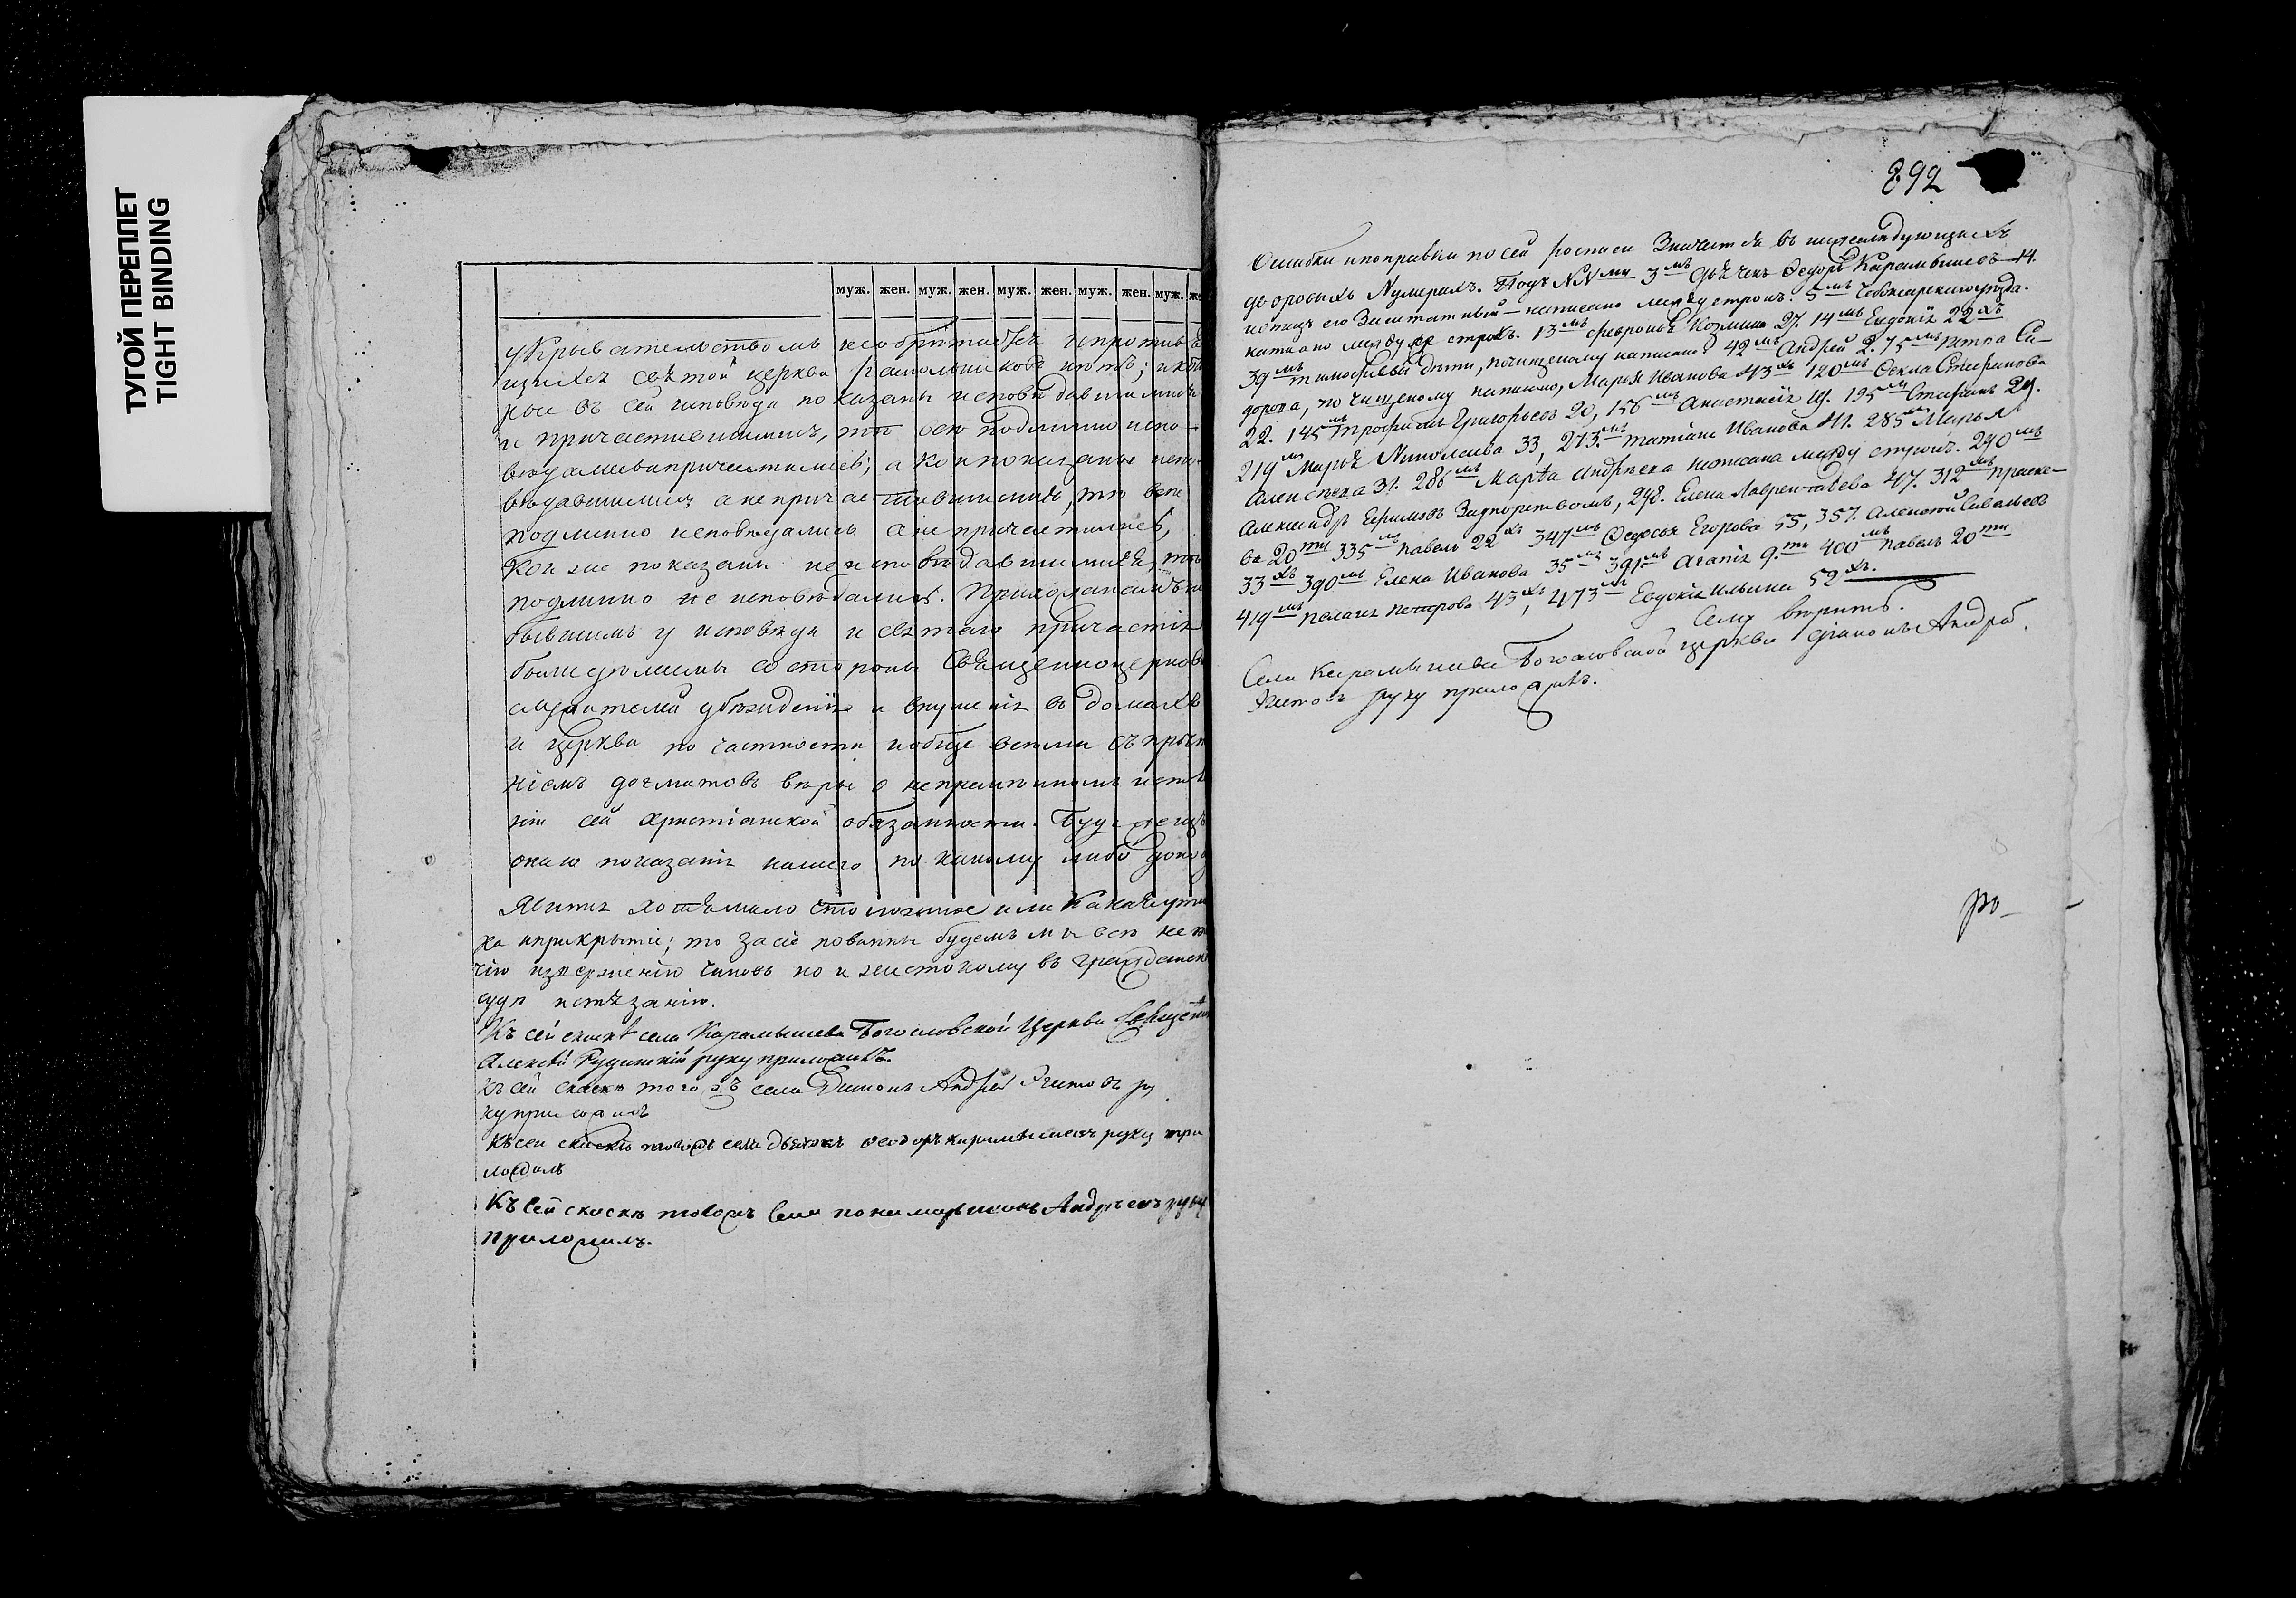 ТУГОЙ ПЕРЕПЛЕТ
TIGHT BINDING
муж. жен. муж. жен. муж. жен. муж. жен. муж. же
укрывательствомъ необрѣтаѣтся и противѣ
щихся святой церкви раскольниковъ нѣтъ; и кото
рые въ сей исповѣди показаны исповѣдавшимися
и причастившимися, тѣ всѣ подлинно испо-
вѣдались и причастились; а кои показаны испо-
вѣдавшимися а не причастившимися, тѣ всѣ
подлинно исповѣдались а не причастились,
Кои же показаны не исповѣдавшимися, тѣ
подлинно не исповѣдались. Прихожанамъ не
бывшимъ у исповѣди и святаго причастія
были дѣланы со стороны Священноцерковно
служителей убѣжденія и внушенія въ домахъ
и церкви по частности и обще всѣми съ прочте
ніемъ догматовъ вѣры о непремѣнномъ исполне
ніи сей христіанской обязанности. Буде же изъ
онаго показанія нашего по какому либо доносу
Явится хотя мало что ложное или какая ута
ка и прикрытіе; то за сіе повинны будемъ мы всѣ не то
чію изверженію чиновъ но и жестокому въ гражданском
судѣ истязанію.
Къ сей скаскѣ села Карамышева Богословской Церкви Священникъ
Алексѣй Рудинскій руку приложилъ.
Къ сей скаскѣ того жъ села Диаконъ Андрей Аитовъ ру
ку приложилъ
Къ сей скаскѣ того жъ села дьячекъ Ѳеодоръ карамышевъ руку при
ложилъ
Къ сей скаскѣ того жъ села пономарь Андрѣевъ руку
приложилъ.
892
Ошибки и поправки по сей росписи Значатся въ нижеслѣдующихъ
дворовыхъ Нумерахъ. Подъ NNми 3мъ Дьячекъ Ѳедоръ Карамышевъ 44.
отецъ его Заштатный — написано между строкъ. 5мъ Чебоксарскаго уѣзда.
написано между строкъ. 13мъ Февронья Козмина 27. 14мъ Евдокія 22хъ
39мъ Тимофѣевы дѣти, по чищеному написано 42мъ Андрей 2. 75мъ Петра Си-
дорова, по чищеному написано, Марья Иванова 43хъ 120мъ Ѳекла Стефанова
22. 145мъ Трофимъ Григорьевъ 20, 156мъ Анастасія 19. 195мъ Стефанъ 29.
219мъ Марья Николаева 33, 273мъ Татіана Иванова 41. 285мъ Марья
Алексѣева 31. 286мъ Марѳа Андрѣева написана между строкъ. 290мъ
Александръ Ефимовъ Задворствомъ, 298. Елена Лаврентьева 47. 312мъ Праско-
ва 20ти 335мъ Павелъ 22хъ 347мъ Ѳедосья Егорова 55, 357. Алексѣй Савельевъ
33хъ 390мъ Елена Иванова 35мъ 391мъ Агапія 9.ти 400мъ Павелъ 20ти
419мъ Пелагія Петрова 43хъ, 473мъ Евдокія Ильина 52хъ.
Сему вѣрить.
Села Карамышева Богословской церкви діаконъ Андрей
Аитовъ руку приложилъ.